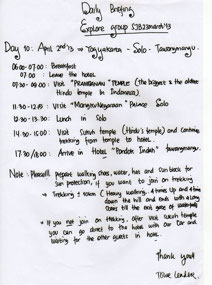 Daily Briefing
Explore group S2B23march'13
Day 10: April 2nd'13 → Yogyakarta - Solo - Tawangmangu
06:00 - 07:00 : Breakfast
07:00 : Leave the hotel
07:30 - 09:00 : Visit "PRAMBANAN" TEMPLE (the biggest & the oldest
Hindu temple in Indonesia)
11.30 - 12.15 : Visit "Mangkunegaraan" Palace Solo
12.30 - 13.30 : Lunch in Solo
14.30 - 15.00 : Visit Sukuh temple (Hindu's temple) and continue
trekking from temple to hotel.
17.30/18.00 : Arrive in Hotel "Pondok Indah" tawangmangu.
Note : Please!!! prepare walking shoes, water, hat and Sun block for
sun protection, if you want to join on trekking
→ Trekking ± 10km (Heavy walking, 4 times Up and 4 times
down the hill and ends with a long
stairs till the exit gate of waterfall)
* If you not join on trekking, after visit Sukuh temple
you can go direct to the hotel with our Car and
waiting for the other guests in hotel.
Thank you!
Tour Leader